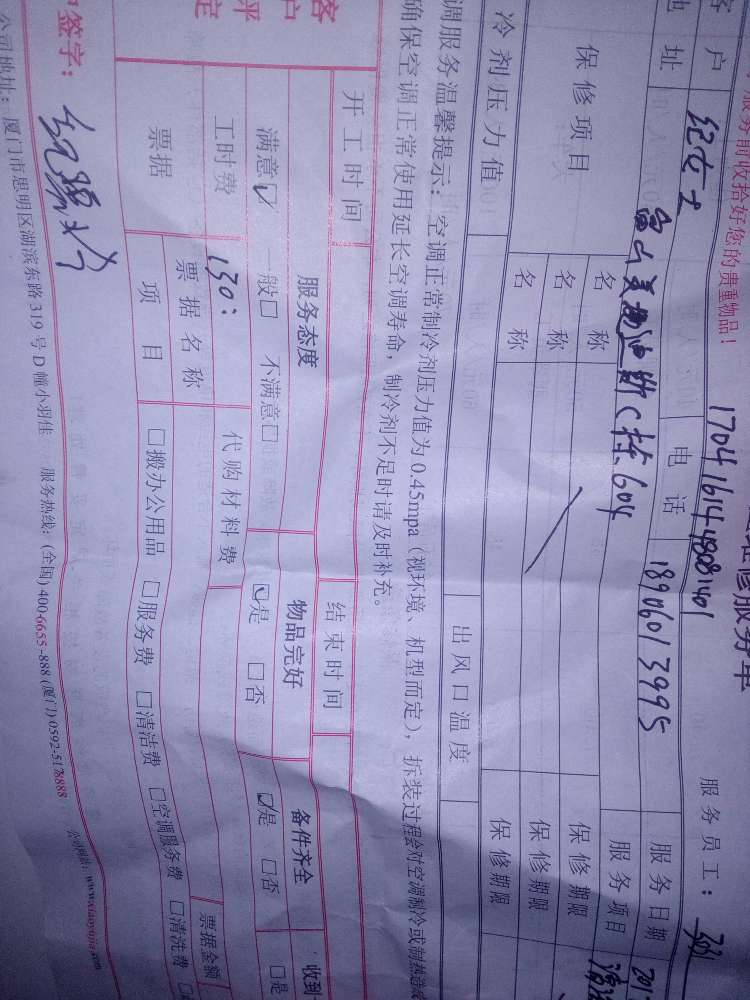 维修服务单
服务前收拾好您的贵重物品！
1704161448081401
服务员工：
客 户
纪女士
电 话
18906013995
服务日期
201
地 址
富山美
C栋604
服务项目
清洗
保修项目
名 称
保修期限
名 称
保修期限
名 称
保修期限
冷剂压力值
出风口温度
调服务温馨提示：空调正常制冷剂压力值为0.45mpa（视环境、机型而定），拆装过程会对空调制冷或制热造成
确保空调正常使用延长空调寿命，制冷剂不足时请及时补充。
开工时间
结束时间
客户评定
服务态度
物品完好
备件齐全
收到
满意☑ 一般□ 不满意□
☑是 □否
☑是 □否
□是
工时费
130：
代购材料费
票据
票据名称
票据金额
项 目
□搬办公用品 □服务费 □清洁费 □空调服务费 □清洗费
户签字：
公司地址：厦门市思明区湖滨东路319号D幢小羽佳 服务热线：(全国) 400-6655-888 (厦门) 0592-5178888 公司网站：www.xiaoyujia.com